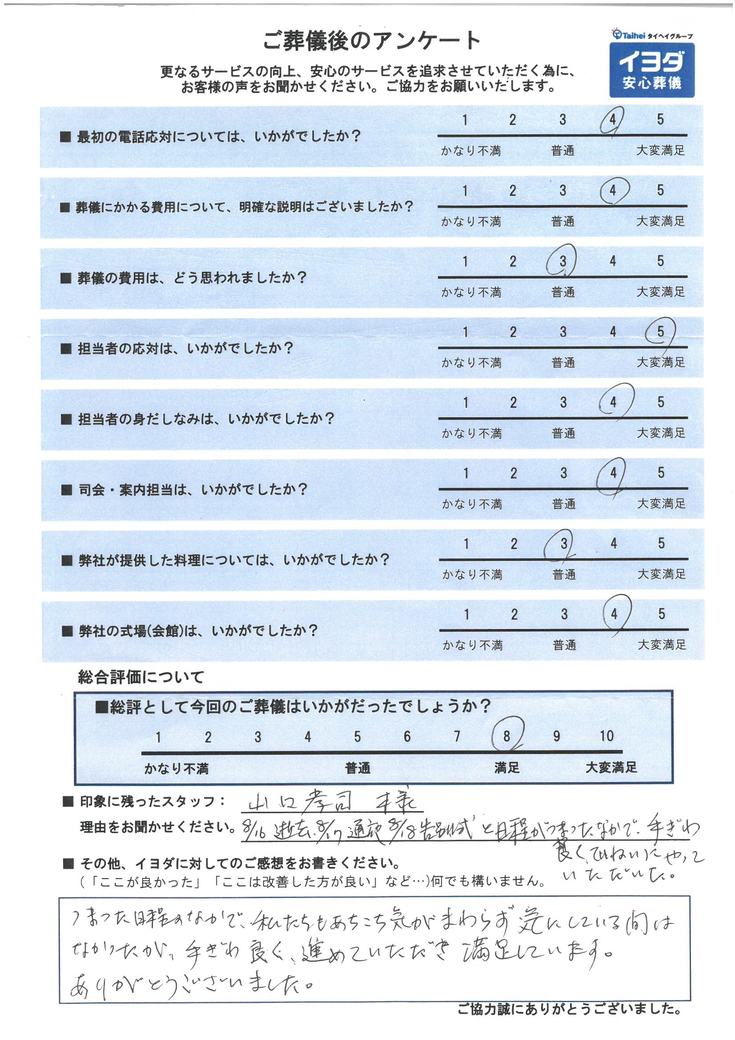 ご葬儀後のアンケート
Taihei タイヘイグループ
イヨダ
安心葬儀
更なるサービスの向上、安心のサービスを追求させていただく為に、
お客様の声をお聞かせください。ご協力をお願いいたします。
■ 最初の電話応対については、いかがでしたか？
1 2 3 4 5
かなり不満 普通 大変満足
■ 葬儀にかかる費用について、明確な説明はございましたか？
1 2 3 4 5
かなり不満 普通 大変満足
■ 葬儀の費用は、どう思われましたか？
1 2 3 4 5
かなり不満 普通 大変満足
■ 担当者の応対は、いかがでしたか？
1 2 3 4 5
かなり不満 普通 大変満足
■ 担当者の身だしなみは、いかがでしたか？
1 2 3 4 5
かなり不満 普通 大変満足
■ 司会・案内担当は、いかがでしたか？
1 2 3 4 5
かなり不満 普通 大変満足
■ 弊社が提供した料理については、いかがでしたか？
1 2 3 4 5
かなり不満 普通 大変満足
■ 弊社の式場(会館)は、いかがでしたか？
1 2 3 4 5
かなり不満 普通 大変満足
総合評価について
■総評として今回のご葬儀はいかがだったでしょうか？
1 2 3 4 5 6 7 8 9 10
かなり不満 普通 満足 大変満足
■ 印象に残ったスタッフ： 山口孝司 様
理由をお聞かせください。8/16 逝去、8/17 通夜 8/18 告別式 と日程がつまったなかで、手ぎわ
良く、ていねいにやって
いただいた。
■ その他、イヨダに対してのご感想をお書きください。
（「ここが良かった」「ここは改善した方が良い」など…)何でも構いません。
つまった日程のなかで、私たちもあちこち気がまわらず気にしている間は
なかったが、手ぎわ良く、進めていただき満足しています。
ありがとうございました。
ご協力誠にありがとうございました。